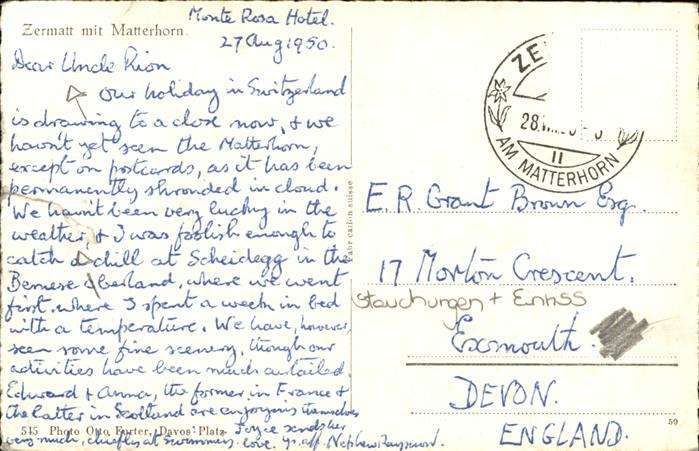 Monte Rosa Hotel.
Zermatt mit Matterhorn.
27 Aug 1950.
Dear Uncle Rion
Our holiday in Switzerland
is drawing to a close now, & we
haven't yet seen the Matterhorn,
except on postcards, as it has been
permanently shrouded in cloud.
We havn't been very lucky in the
weather, & I was foolish enough to
catch a chill at Scheidegg in the
Bernese Oberland, where we went
first, where I spent a week in bed
with a temperature. We have, however,
seen some fine scenery, though our
activities have been much curtailed.
Edward & Anna, the former in France &
the latter in Scotland are enjoying themselves
very much, chiefly at swimming. Joyce sends her
love. yr. aff. Nephew
545 Photo Otto Furter, Davos-Platz
suisse
ZE
28.VIII.50
II
AM MATTERHORN
E.R. Grant Brown Esq.
17 Morton Crescent.
Stauchungen + Einriss
Exmouth.
DEVON.
ENGLAND.
50